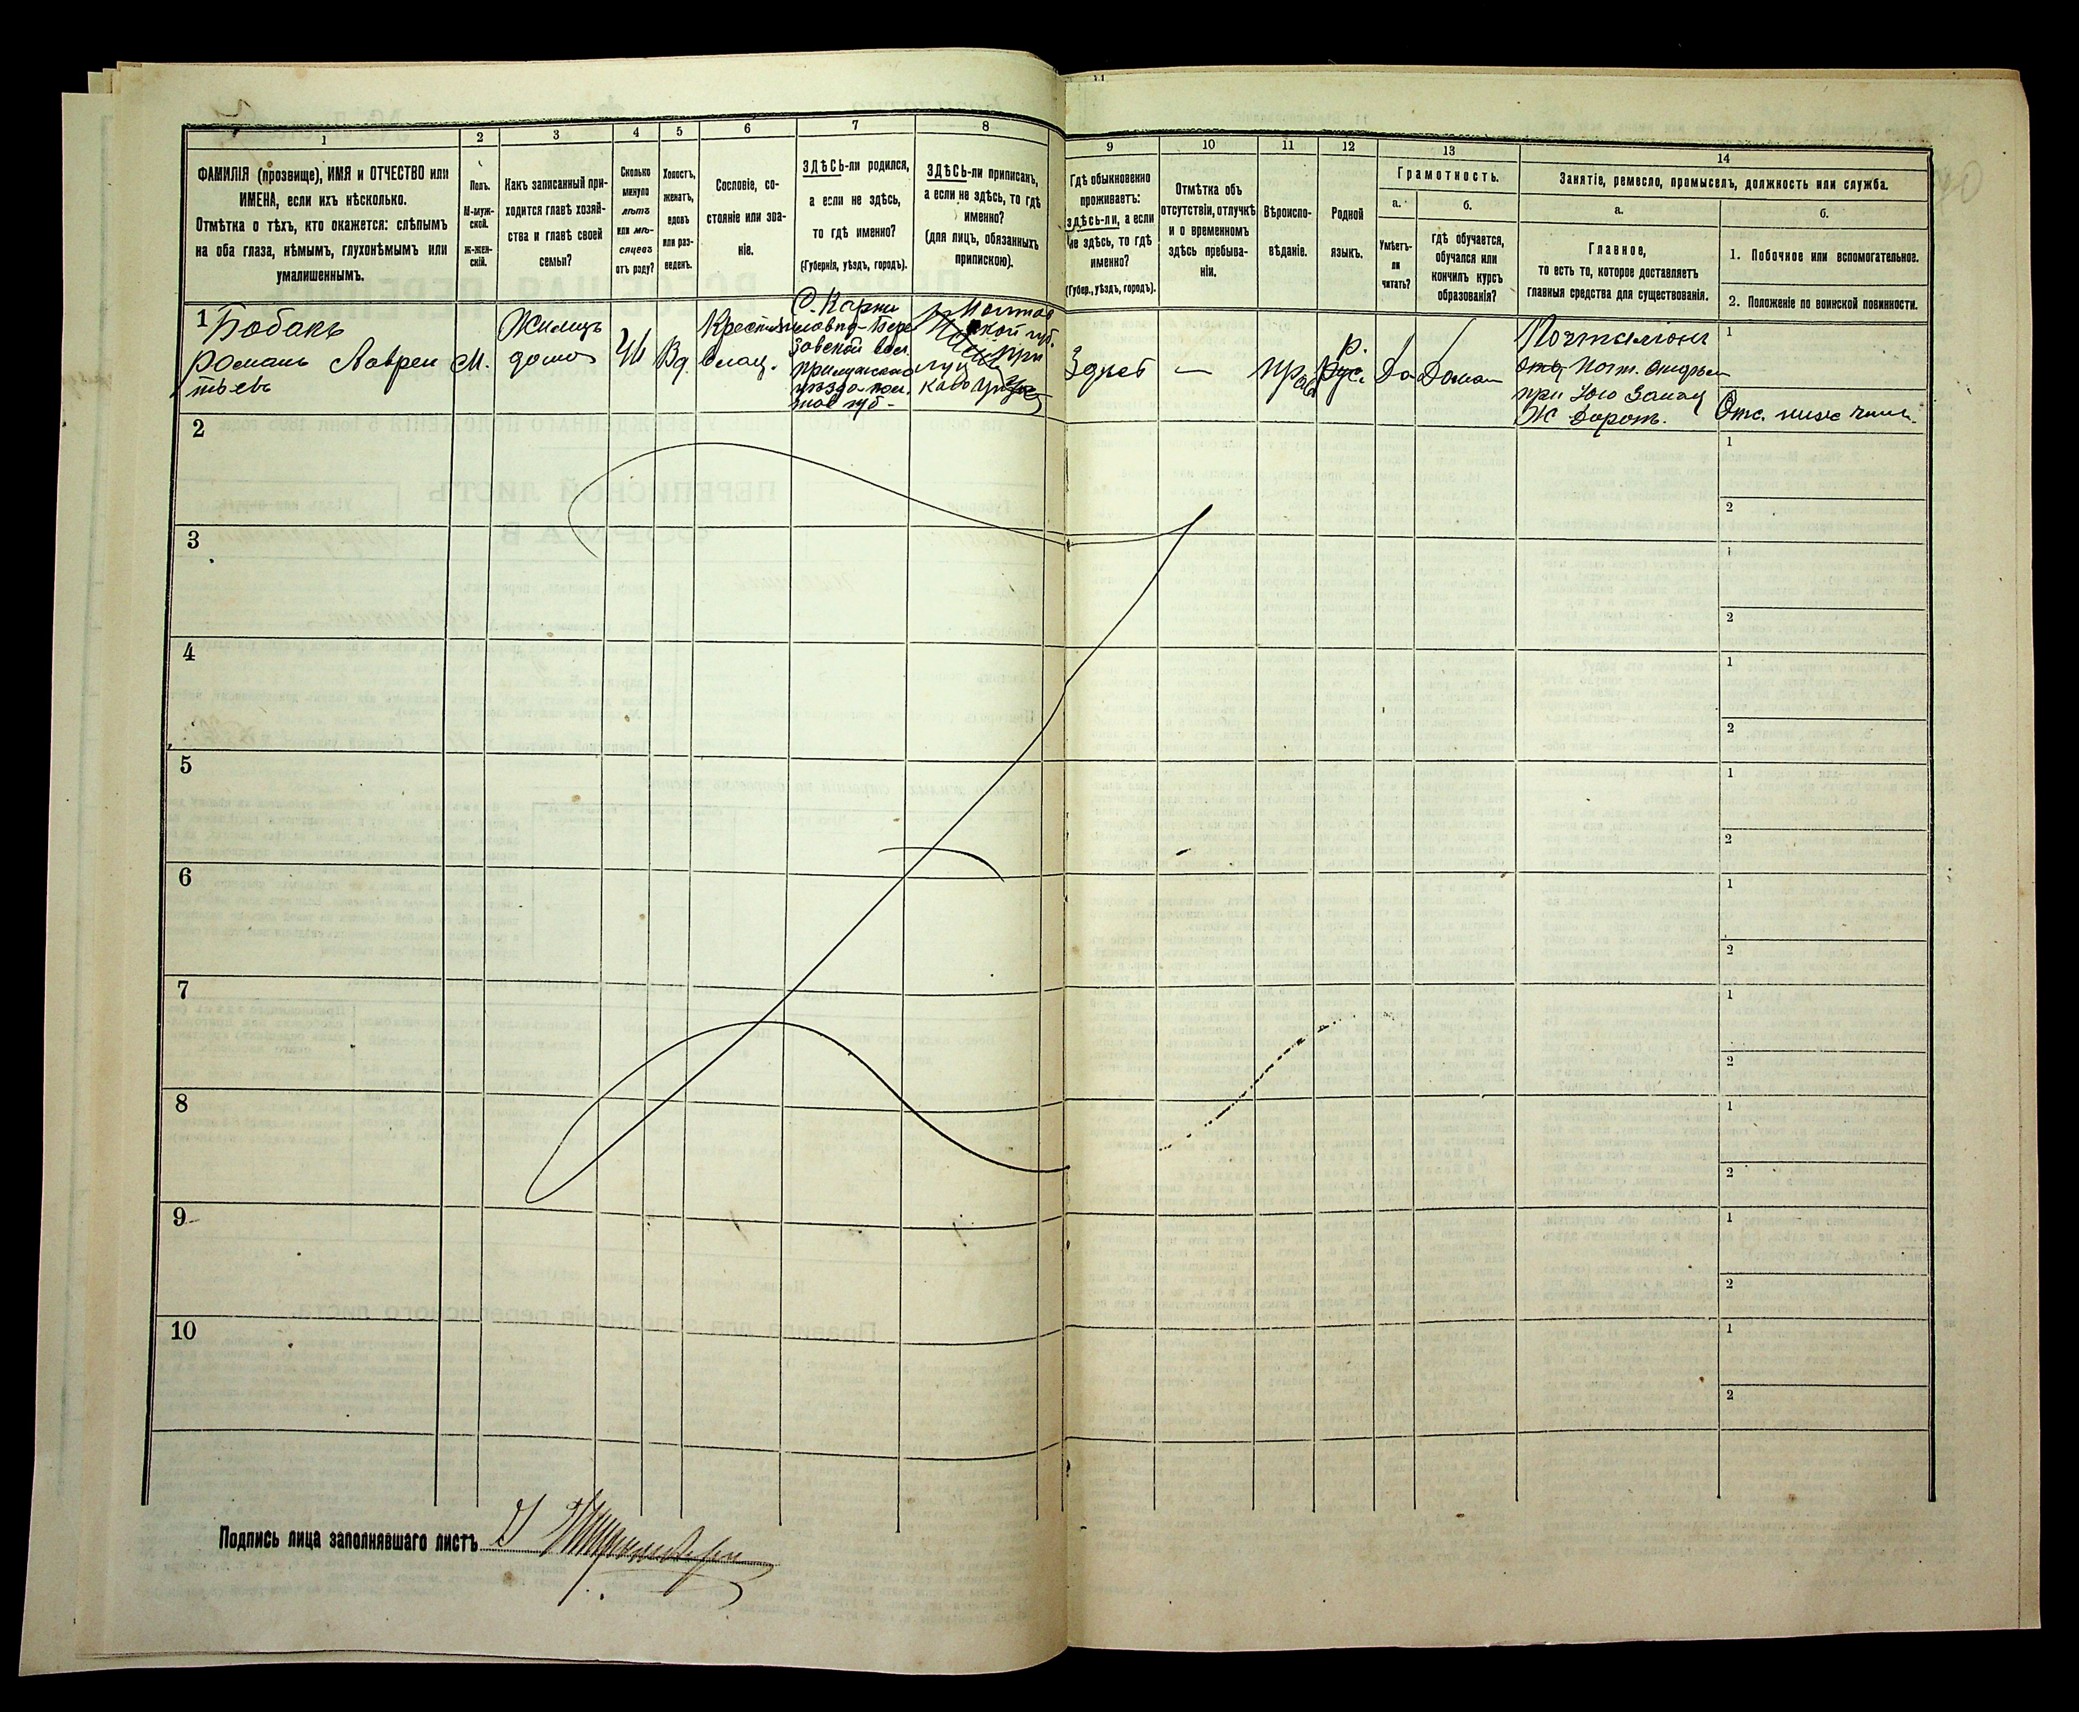 1
2
3
4
5
6
7
8
ФАМИЛІЯ (прозвище), ИМЯ и ОТЧЕСТВО или
ИМЕНА, если ихъ нѣсколько.
Отмѣтка о тѣхъ, кто окажется: слѣпымъ
на оба глаза, нѣмымъ, глухонѣмымъ или
умалишеннымъ.
Полъ.
М-муж-
ской.
Ж-жен-
скій.
Какъ записанный при-
ходится главѣ хозяй-
ства и главѣ своей
семьи?
Сколько
минуло
лѣтъ
или мѣ-
сяцевъ
отъ роду?
Холостъ,
женатъ,
вдовъ
или раз-
веденъ.
Сословіе, со-
стояніе или зва-
ніе.
ЗДѢСЬ-ли родился,
а если не здѣсь,
то гдѣ именно?
(Губернія, уѣздъ, городъ).
ЗДѢСЬ-ли приписанъ,
а если не здѣсь, то гдѣ
именно?
(для лицъ, обязанныхъ
припискою).
9
10
11
12
13
14
Гдѣ обыкновенно
проживаетъ:
здѣсь-ли, а если
не здѣсь, то гдѣ
именно?
(Губер., уѣздъ, городъ).
Отмѣтка объ
отсутствіи, отлучкѣ
и о временномъ
здѣсь пребыва-
ніи.
Вѣроиспо-
вѣданіе.
Родной
языкъ.
Грамотность.
а.
б.
Умѣетъ-
ли
читать?
гдѣ обучается,
обучался или
кончилъ курсъ
образованія?
Занятіе, ремесло, промыселъ, должность или служба.
а.
б.
Главное,
то есть то, которое доставляетъ
главныя средства для существованія.
1. Побочное или вспомогательное.
2. Положеніе по воинской повинности.
1 Бобакъ
Романъ Лаврен
тьевъ
М.
Жилецъ
дома
Вд.
Крестьян
С. Карпи
ловка-Бере
зовской вол.
прилукскаго
уѣзда пол
тав губ-
Полтав
ской губ.
при
луц
каго
Здѣсь
—
прав
р.
Рус.
Да
Дома
Почтальонъ
почт. отдѣл
при Юго Запад
Ж дорогъ.
1
Отс. ниж чинъ.
2
1
2
3
1
2
4
1
2
5
1
2
6
1
2
7
1
2
8
1
2
9
1
2
10
1
2
Подпись лица заполнявшаго листъ